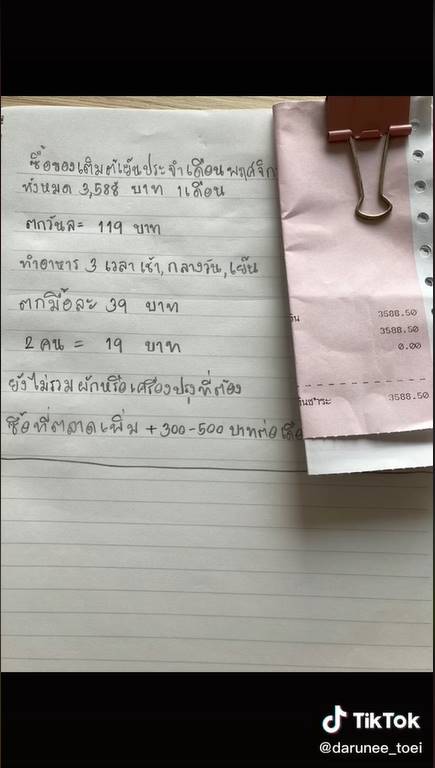 ซื้อของเติมตู้เย็นประจำเดือน พฤศจิก
ทั้งหมด 3,588 บาท 1เดือน
ตกวันละ 119 บาท
ทำอาหาร 3 เวลา เช้า, กลางวัน, เย็น
ตกมื้อละ 39 บาท
2 คน = 19 บาท
ยังไม่รวมผักหรือเครื่องปรุงที่ต้อง
ซื้อที่ตลาดเพิ่ม + 300-500 บาทต่อเดือ
3588.50
3588.50
0.00
3588.50
TikTok
@darunee_toei